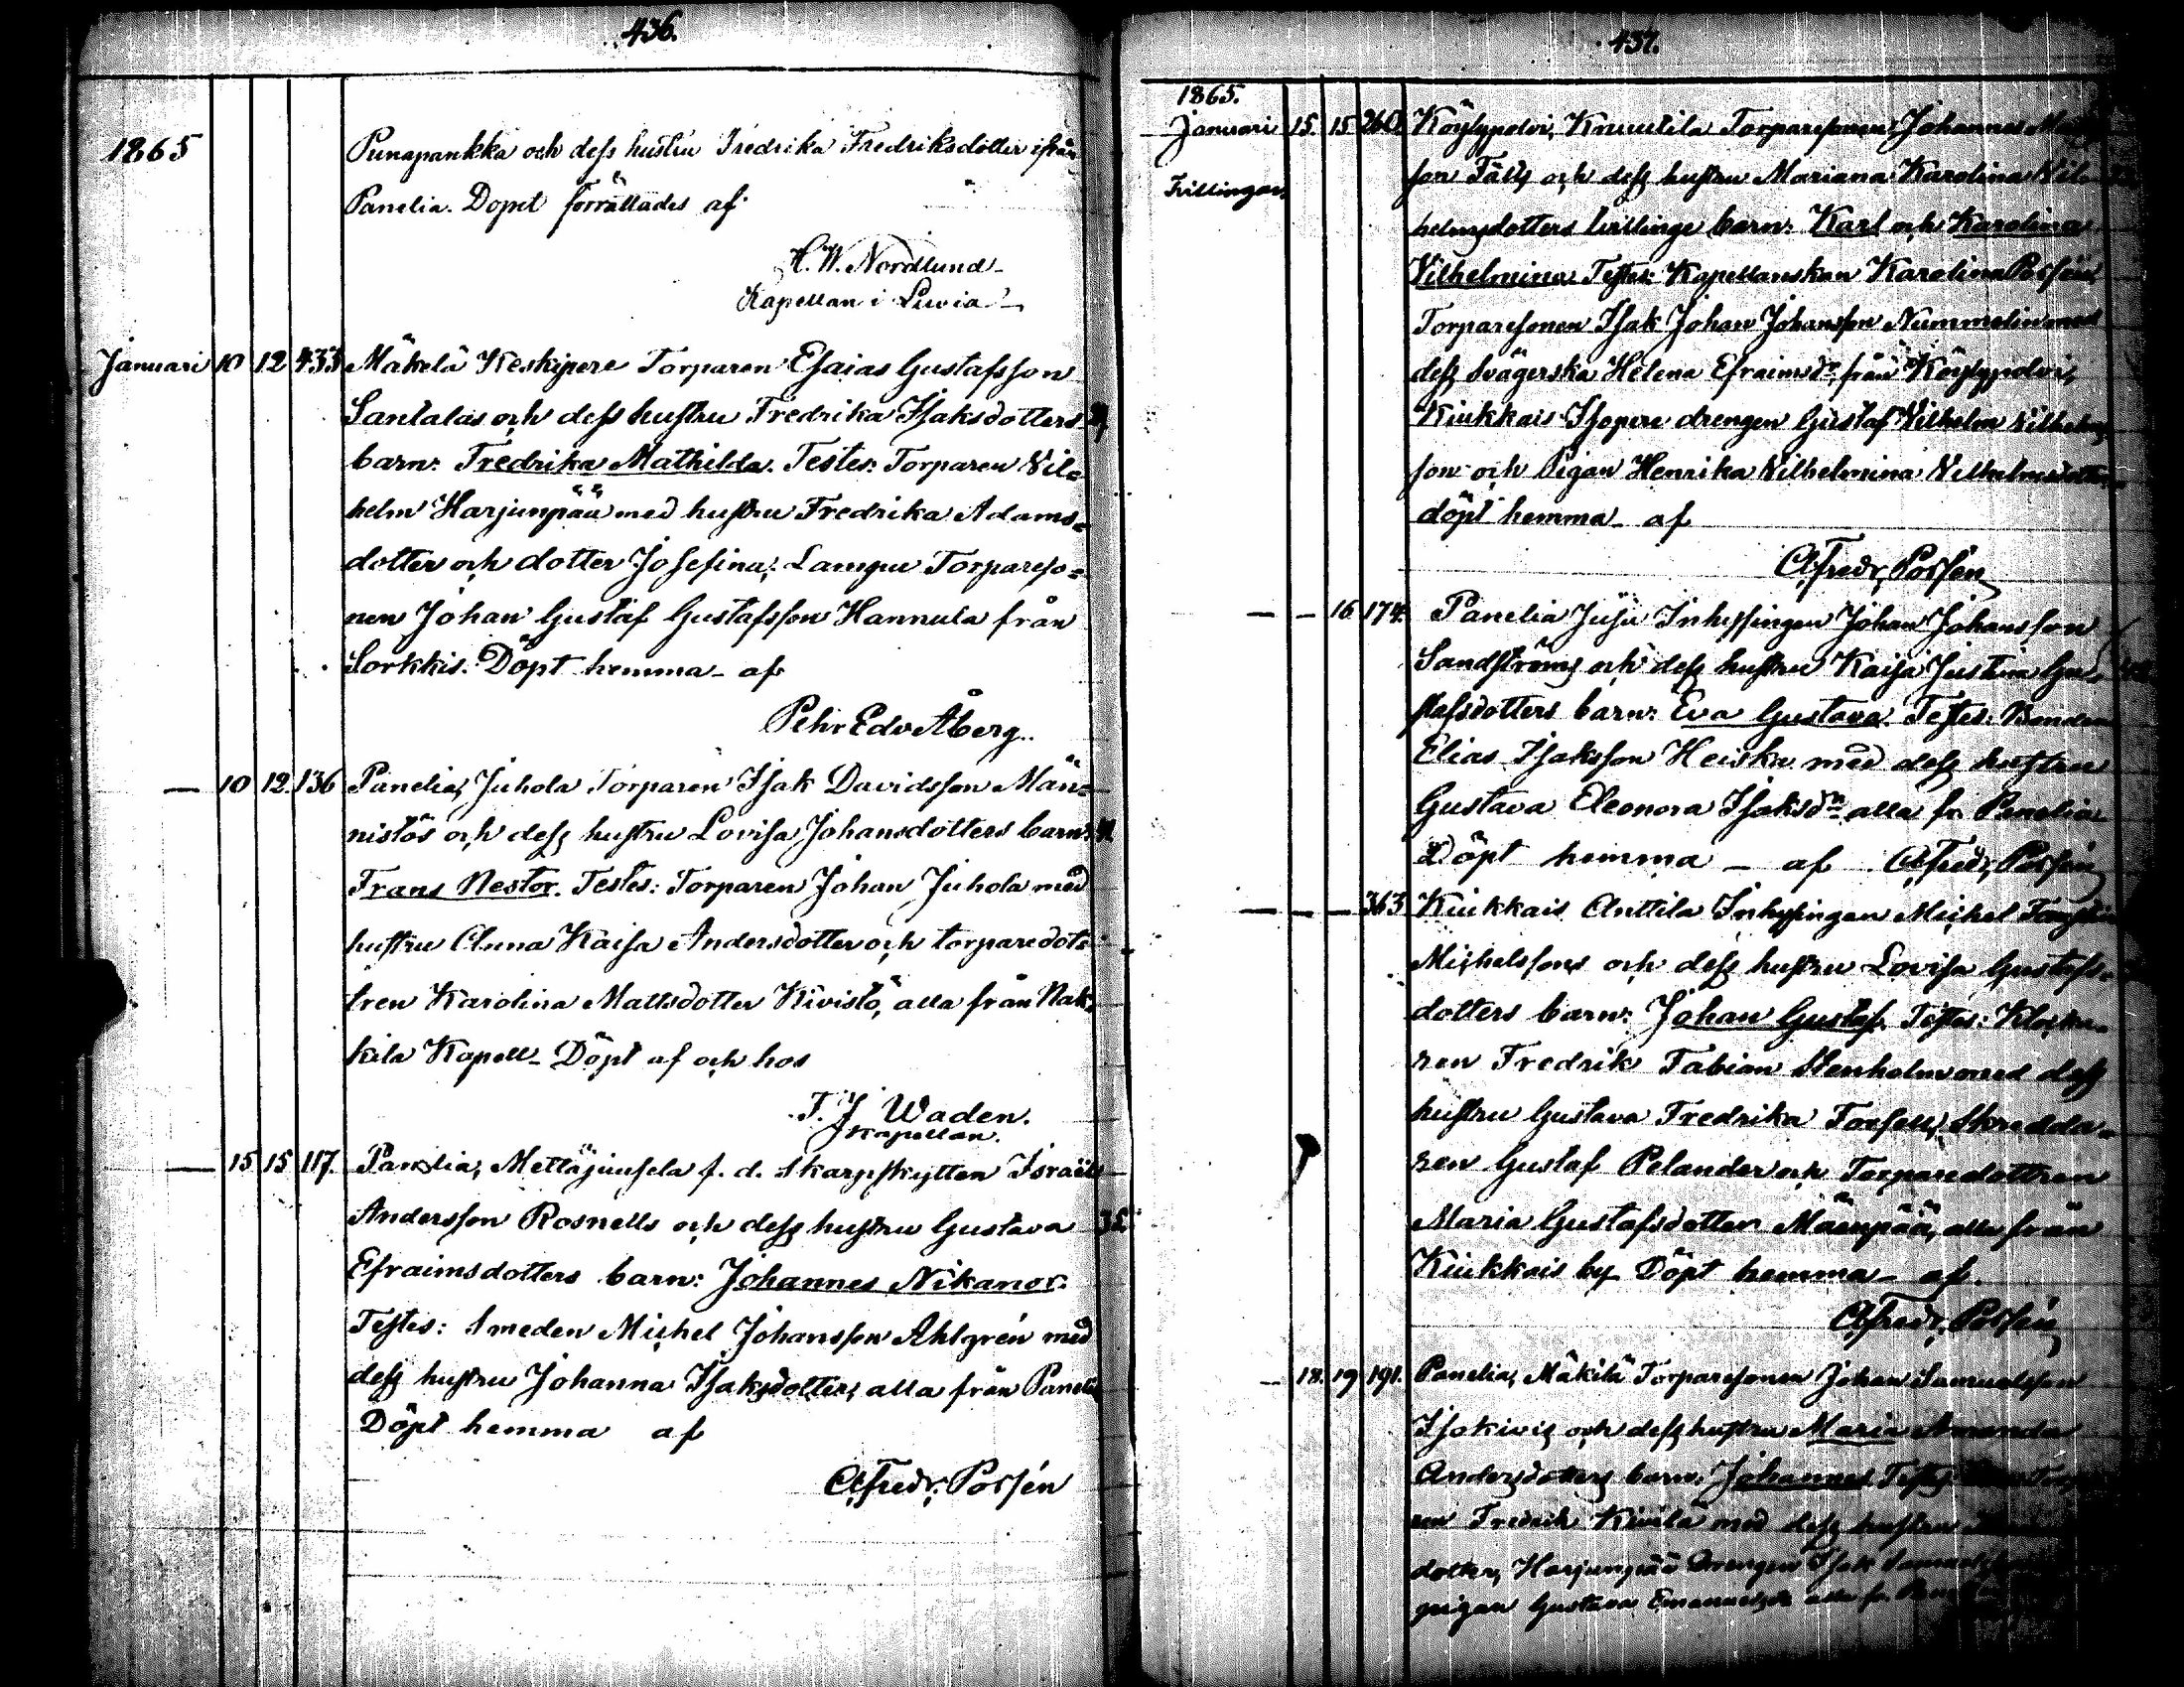 436.
1865
Punapankka och dess hustru Fredrika Fredriksdotter ifrån
Panelia. Dopet förrättades af
H. W. Nordlund
Kapellan i Luvia
Januari 10 12 433 Mäkelä Keskipere Torparen Esaias Gustafsson
Santalas och dess hustru Fredrika Isaksdotters
barn: Fredrika Mathilda. Testes: Torparen Vil=
helm Harjunpää med hustru Fredrika Adams=
dotter och dotter Josefina; Lampu Torpareso=
nen Johan Gustaf Gustafsson Hannula från
Sorkkis. Döpt hemma af
Pehr Edv Åberg.
— 10 12. 136 Panelia, Juhola Torparen Isak Davidsson Män=
nistös och dess hustru Lovisa Johansdotters barn:
Frans Nestor. Testes: Torparen Johan Juhola med
hustru Anna Kaisa Andersdotter och torparedot=
tren Karolina Mattsdotter Kivistö, alla från Nak=
kila Kapell. Döpt af och hos
T. J. Waden.
Kapellan.
— 15 15 117. Panelia, Mettäjuusela f. d. Skarpskytten Israël
Andersson Rosnells och dess hustru Gustava 35
Efraimsdotters barn: Johannes Nikanor.
Testes: Smeden Michel Johansson Ahlgrén med
dess hustru Johanna Isaksdotter, alla från Panelia
Döpt hemma af
A. Fredr. Possén
437.
1865.
Januari 15. 15 260. Köylypolvi, Knuutila Torparesonen Johannes
son Fälts och dess hustru Mariana Karolina Vil
Tvillingar.
helmsdotters tvillinge barn: Karl och Karolina
Vilhelmina. Testes: Kapellanskan Karolina Possén,
Torparesonen Isak Johan Johansson Nummelin med
dess Svägerska Helena Efraimsdr, från Köylypolvi,
Kiukkais Isopere drengen Gustaf Vilhelm Vilhelms
son och Pigan Henrika Vilhelmina Vilhelmsdotter
döpt hemma af
A. Fredr. Possén
— — 16 174. Panelia Jusu Inhysingen Johan Johansson
Sandströms och dess hustru Kaisa Justina Gu
stafsdotters barn: Eva Gustava. Testes: Bonden
Elias Isaksson Heiska med dess hustru
Gustava Eleonora Isaksdr alla fr. Panelia
Döpt hemma — af A. Fredr. Possén
— — — 363 Kiukkais Anttila Inhysingen Michel
Michelssons och dess hustru Lovisa Gustafs=
dotters barn: Johan Gustaf. Testes: Klocka=
ren Fredrik Fabian Stenholm med dess
hustru Gustava Fredrika Forsell, Skredda=
ren Gustaf Pelander och Torparedottren
Maria Gustafsdotter Mäenpää, alla från
Kiukkais by. Döpt hemma af
A. Fredr. Possén
— 18. 19 191. Panelia, Mäkilä Torparesonen Johan Samuelsson
Isokivis och dess hustru Maria Amanda
Andersdotters barn: Johannes Testes
ren Fredrik Kivilä med dess hustru
dotter, Harjunpää Drengen Isak
pigan Gustava Emanuelsdr alla fr.